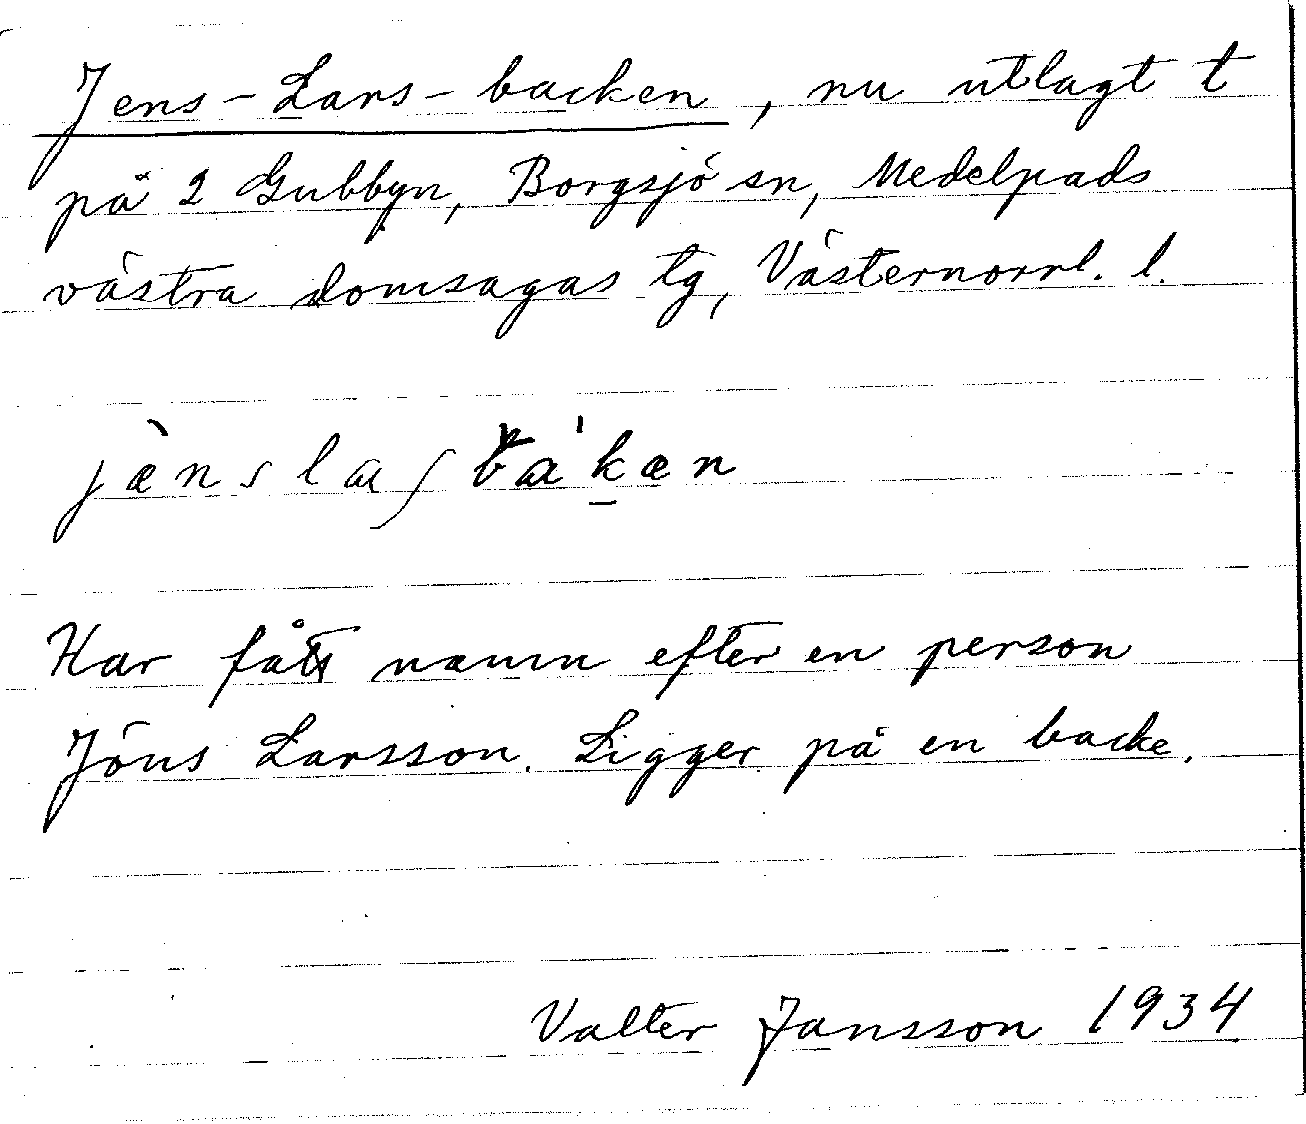 Jens-Lars-backen, nu utlagt t
på 2 Gubbyn, Borgsjö sn, Medelpads
västra domsagas tg, Västernorrl. l.
jæ̀nslaʃbákæn
Har fått namn efter en person
Jöns Larsson. Ligger på en backe.
Valter Jansson 1934